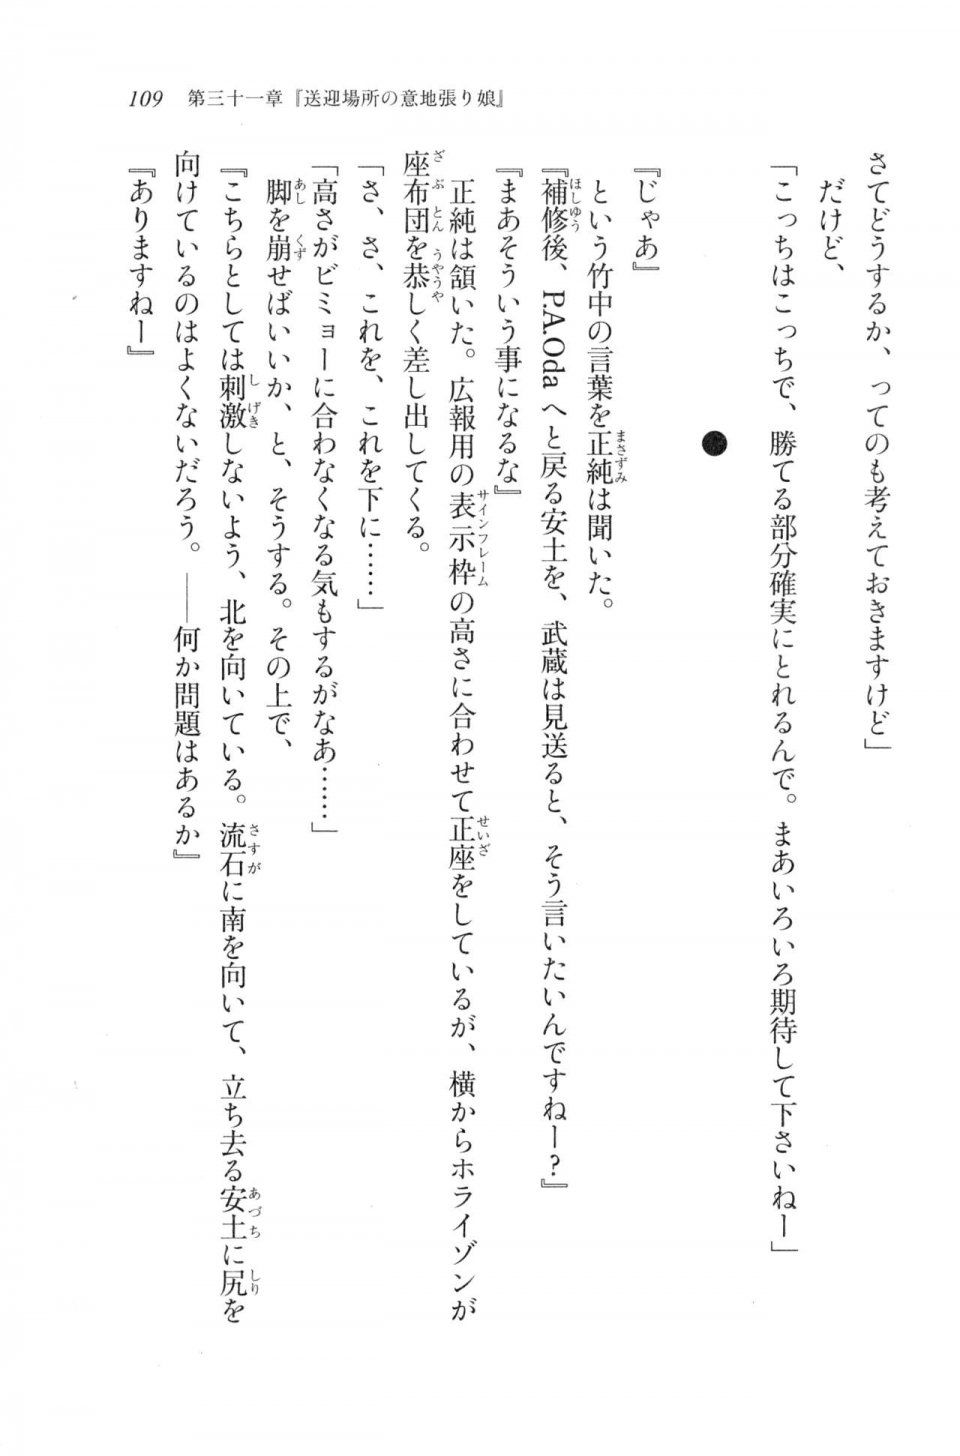 109　第三十一章『送迎場所の意地張り娘』
さてどうするか、ってのも考えておきますけど」
だけど、
「こっちはこっちで、勝てる部分確実にとれるんで。まあいろいろ期待して下さいねー」
●
『じゃあ』
という竹中の言葉を正純は聞いた。
『補修後、P.A.Odaへと戻る安土を、武蔵は見送ると、そう言いたいんですねー?』
『まあそういう事になるな』
正純は頷いた。広報用の表示枠の高さに合わせて正座をしているが、横からホライゾンが
座布団を恭しく差し出してくる。
「さ、さ、これを、これを下に……」
「高さがビミョーに合わなくなる気もするがなあ……」
脚を崩せばいいか、と、そうする。その上で、
『こちらとしては刺激しないよう、北を向いている。流石に南を向いて、立ち去る安土に尻を
向けているのはよくないだろう。――何か問題はあるか』
『ありますねー』